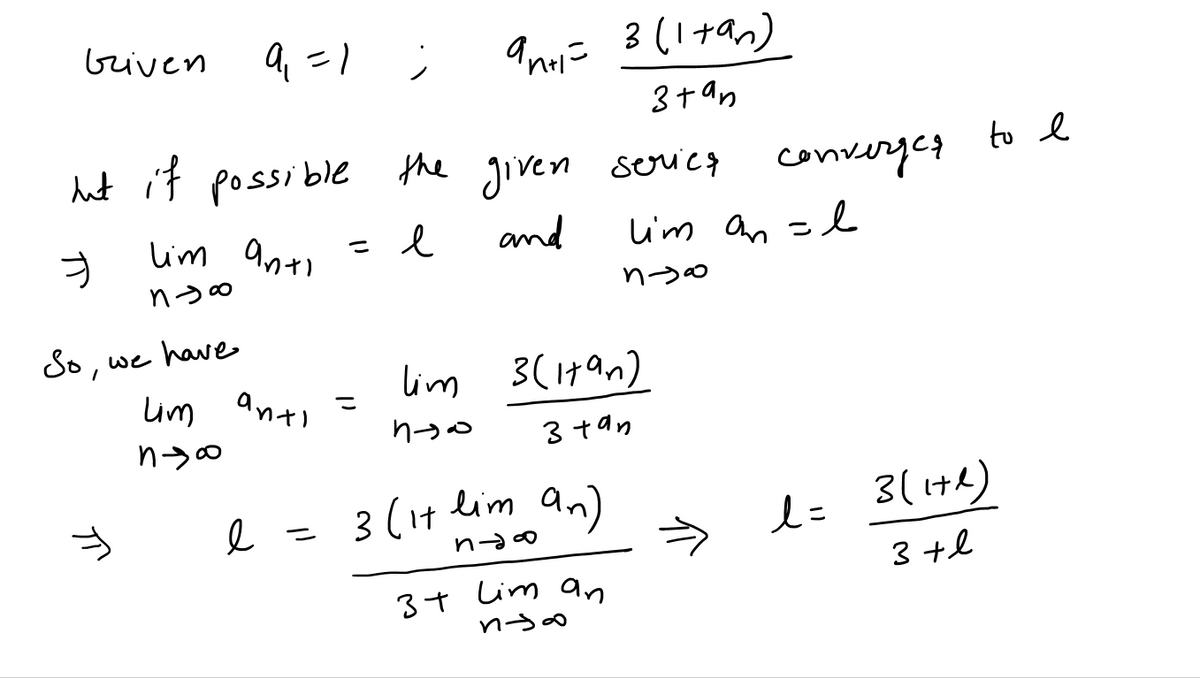 Given a₁ = 1 ; aₙ₊₁ = 3(1+aₙ) / 3+aₙ
Let if possible the given series converges to l
⇒ lim n→∞ aₙ₊₁ = l and lim n→∞ aₙ = l
So, we have
lim n→∞ aₙ₊₁ = lim n→∞ 3(1+aₙ) / 3+aₙ
⇒ l = 3(1+ lim n→∞ aₙ) / 3+ lim n→∞ aₙ ⇒ l = 3(1+l) / 3+l